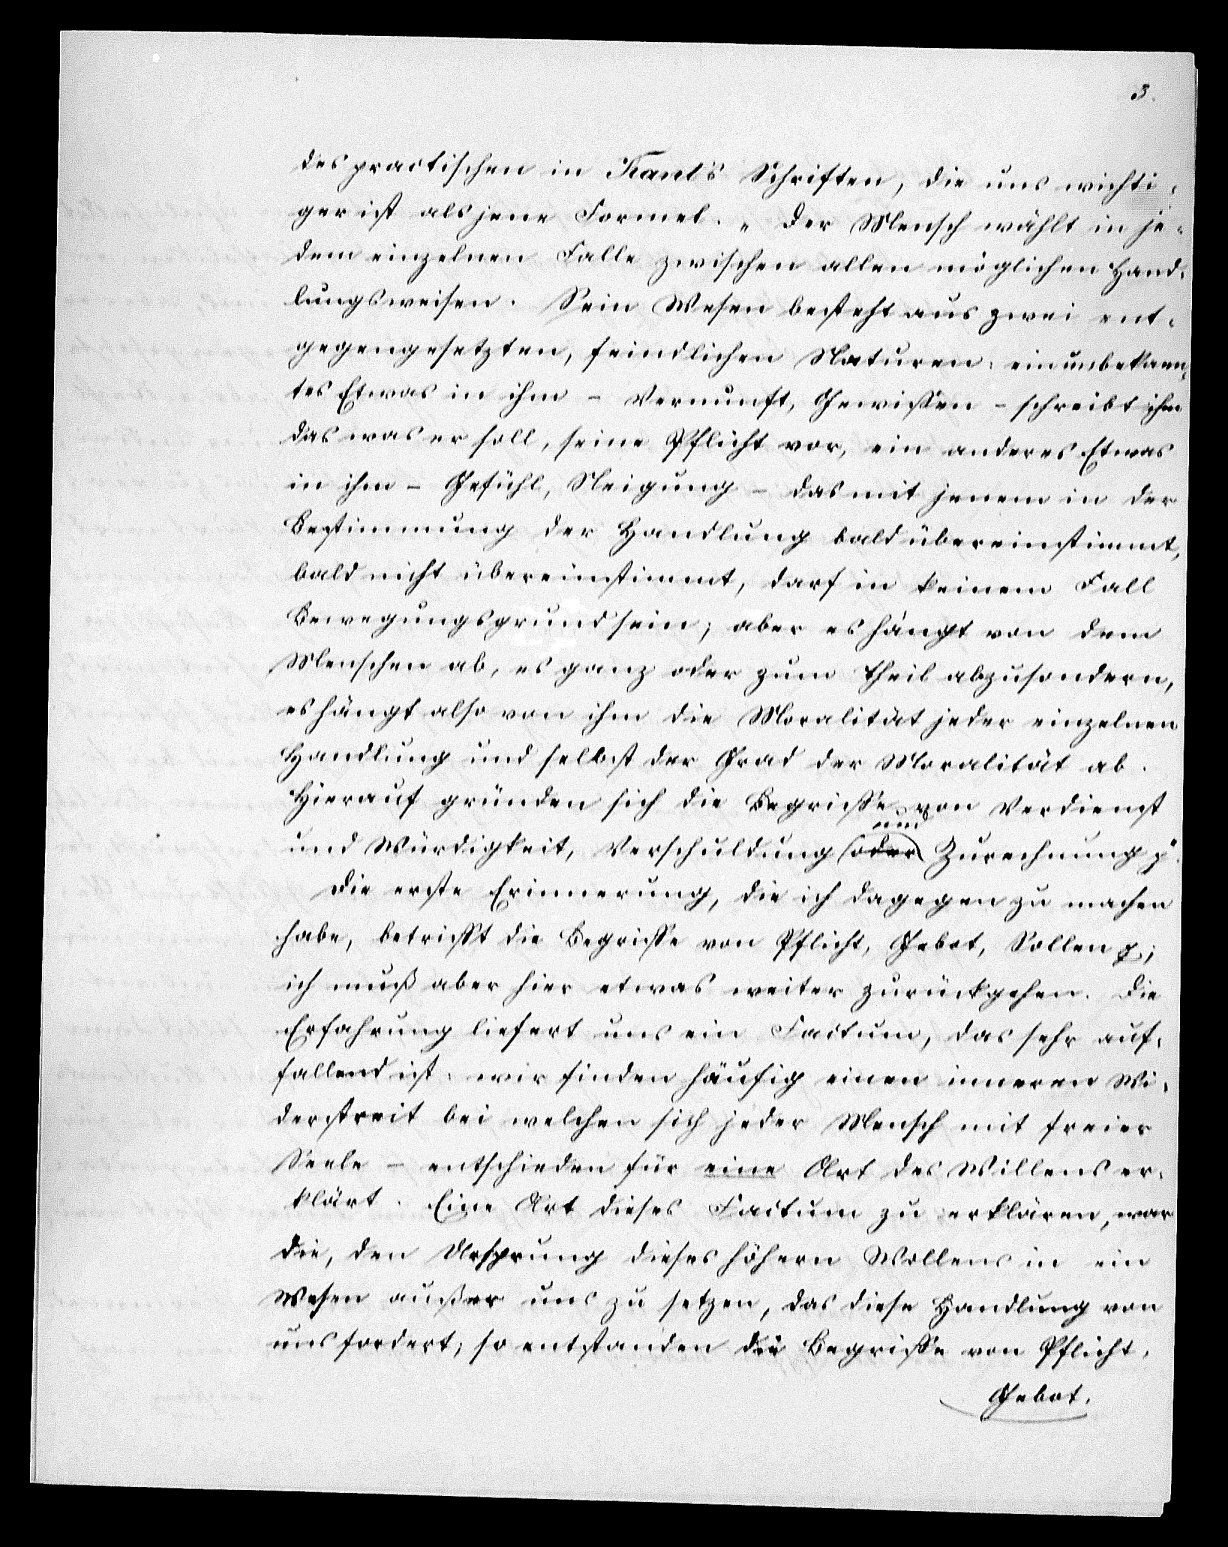 3.
des practischen in Kant's Schriften, die uns wichti-
ger ist als jene Formel. „Der Mensch wählt in je-
dem einzelnen Falle zwischen allen möglichen Hand-
lungsweisen. Sein Wesen besteht aus zwei ent-
gegengesetzten, feindlichen Naturen: ein unbekann-
tes Etwas in ihm – Vernunft, Gewissen – schreibt ihm
das was er soll, seine Pflicht vor, ein anderes Etwas
in ihm – Gefühl, Neigung – das mit jenem in der
Bestimmung der Handlung bald übereinstimmt,
bald nicht übereinstimmt, darf in keinem Fall
Bewegungsgrund sein; aber es hängt von dem
Menschen ab, es ganz oder zum Theil abzusondern,
es hängt also von ihm die Moralität jeder einzelnen
Handlung und selbst der Grad der Moralität ab.
Hierauf gründen sich die Begriffe von Verdienst
und
und Würdigkeit, Verschuldung (oder) Zurechnung p"
Die erste Erinnerung, die ich dagegen zu machen
habe, betrifft die Begriffe von Pflicht, Gebot, Sollen p;
ich muß aber hier etwas weiter zurückgehen. Die
Erfahrung liefert uns ein Factum, das sehr auf-
fallend ist: wir finden häufig einen inneren Wi-
derstreit bei welchen sich jeder Mensch mit freier
Seele – entschieden für eine Art des Willens er-
klärt. Eine Art dieses Factum zu erklären, war
die, den Ursprung dieses höhern Wollens in ein
Wesen außer uns zu setzen, das diese Handlung von
uns fordert; so entstanden die Begriffe von Pflicht,
Gebot.